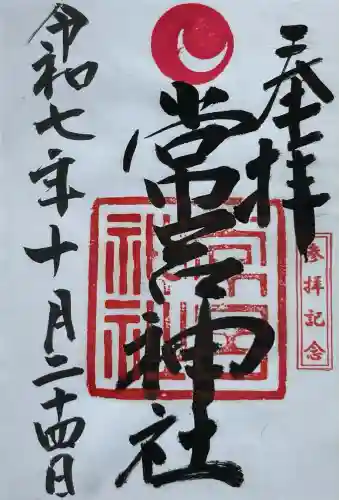 奉拝
常宮神社
参拝記念
常宮神社
令和七年十月二十四日